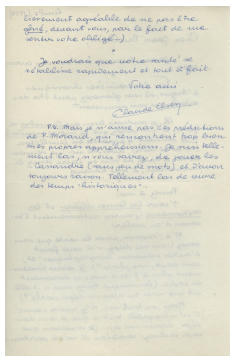 lièrement agréable de ne pas être
gêné, devant vous, par le fait de me
sentir votre obligé.)
*
Je voudrais que votre santé se
rétablisse rapidement et tout à fait
Votre ami
Claude
P.S. Mais je n'aime pas les prédictions
de P. Morand, qui rencontrent trop bien
mes propres appréhensions. Je suis telle-
ment las, si vous saviez, de jouer les
Cassandre (sans jeu de mots) et d'avoir
toujours raison. Tellement las de vivre
des temps "historiques".